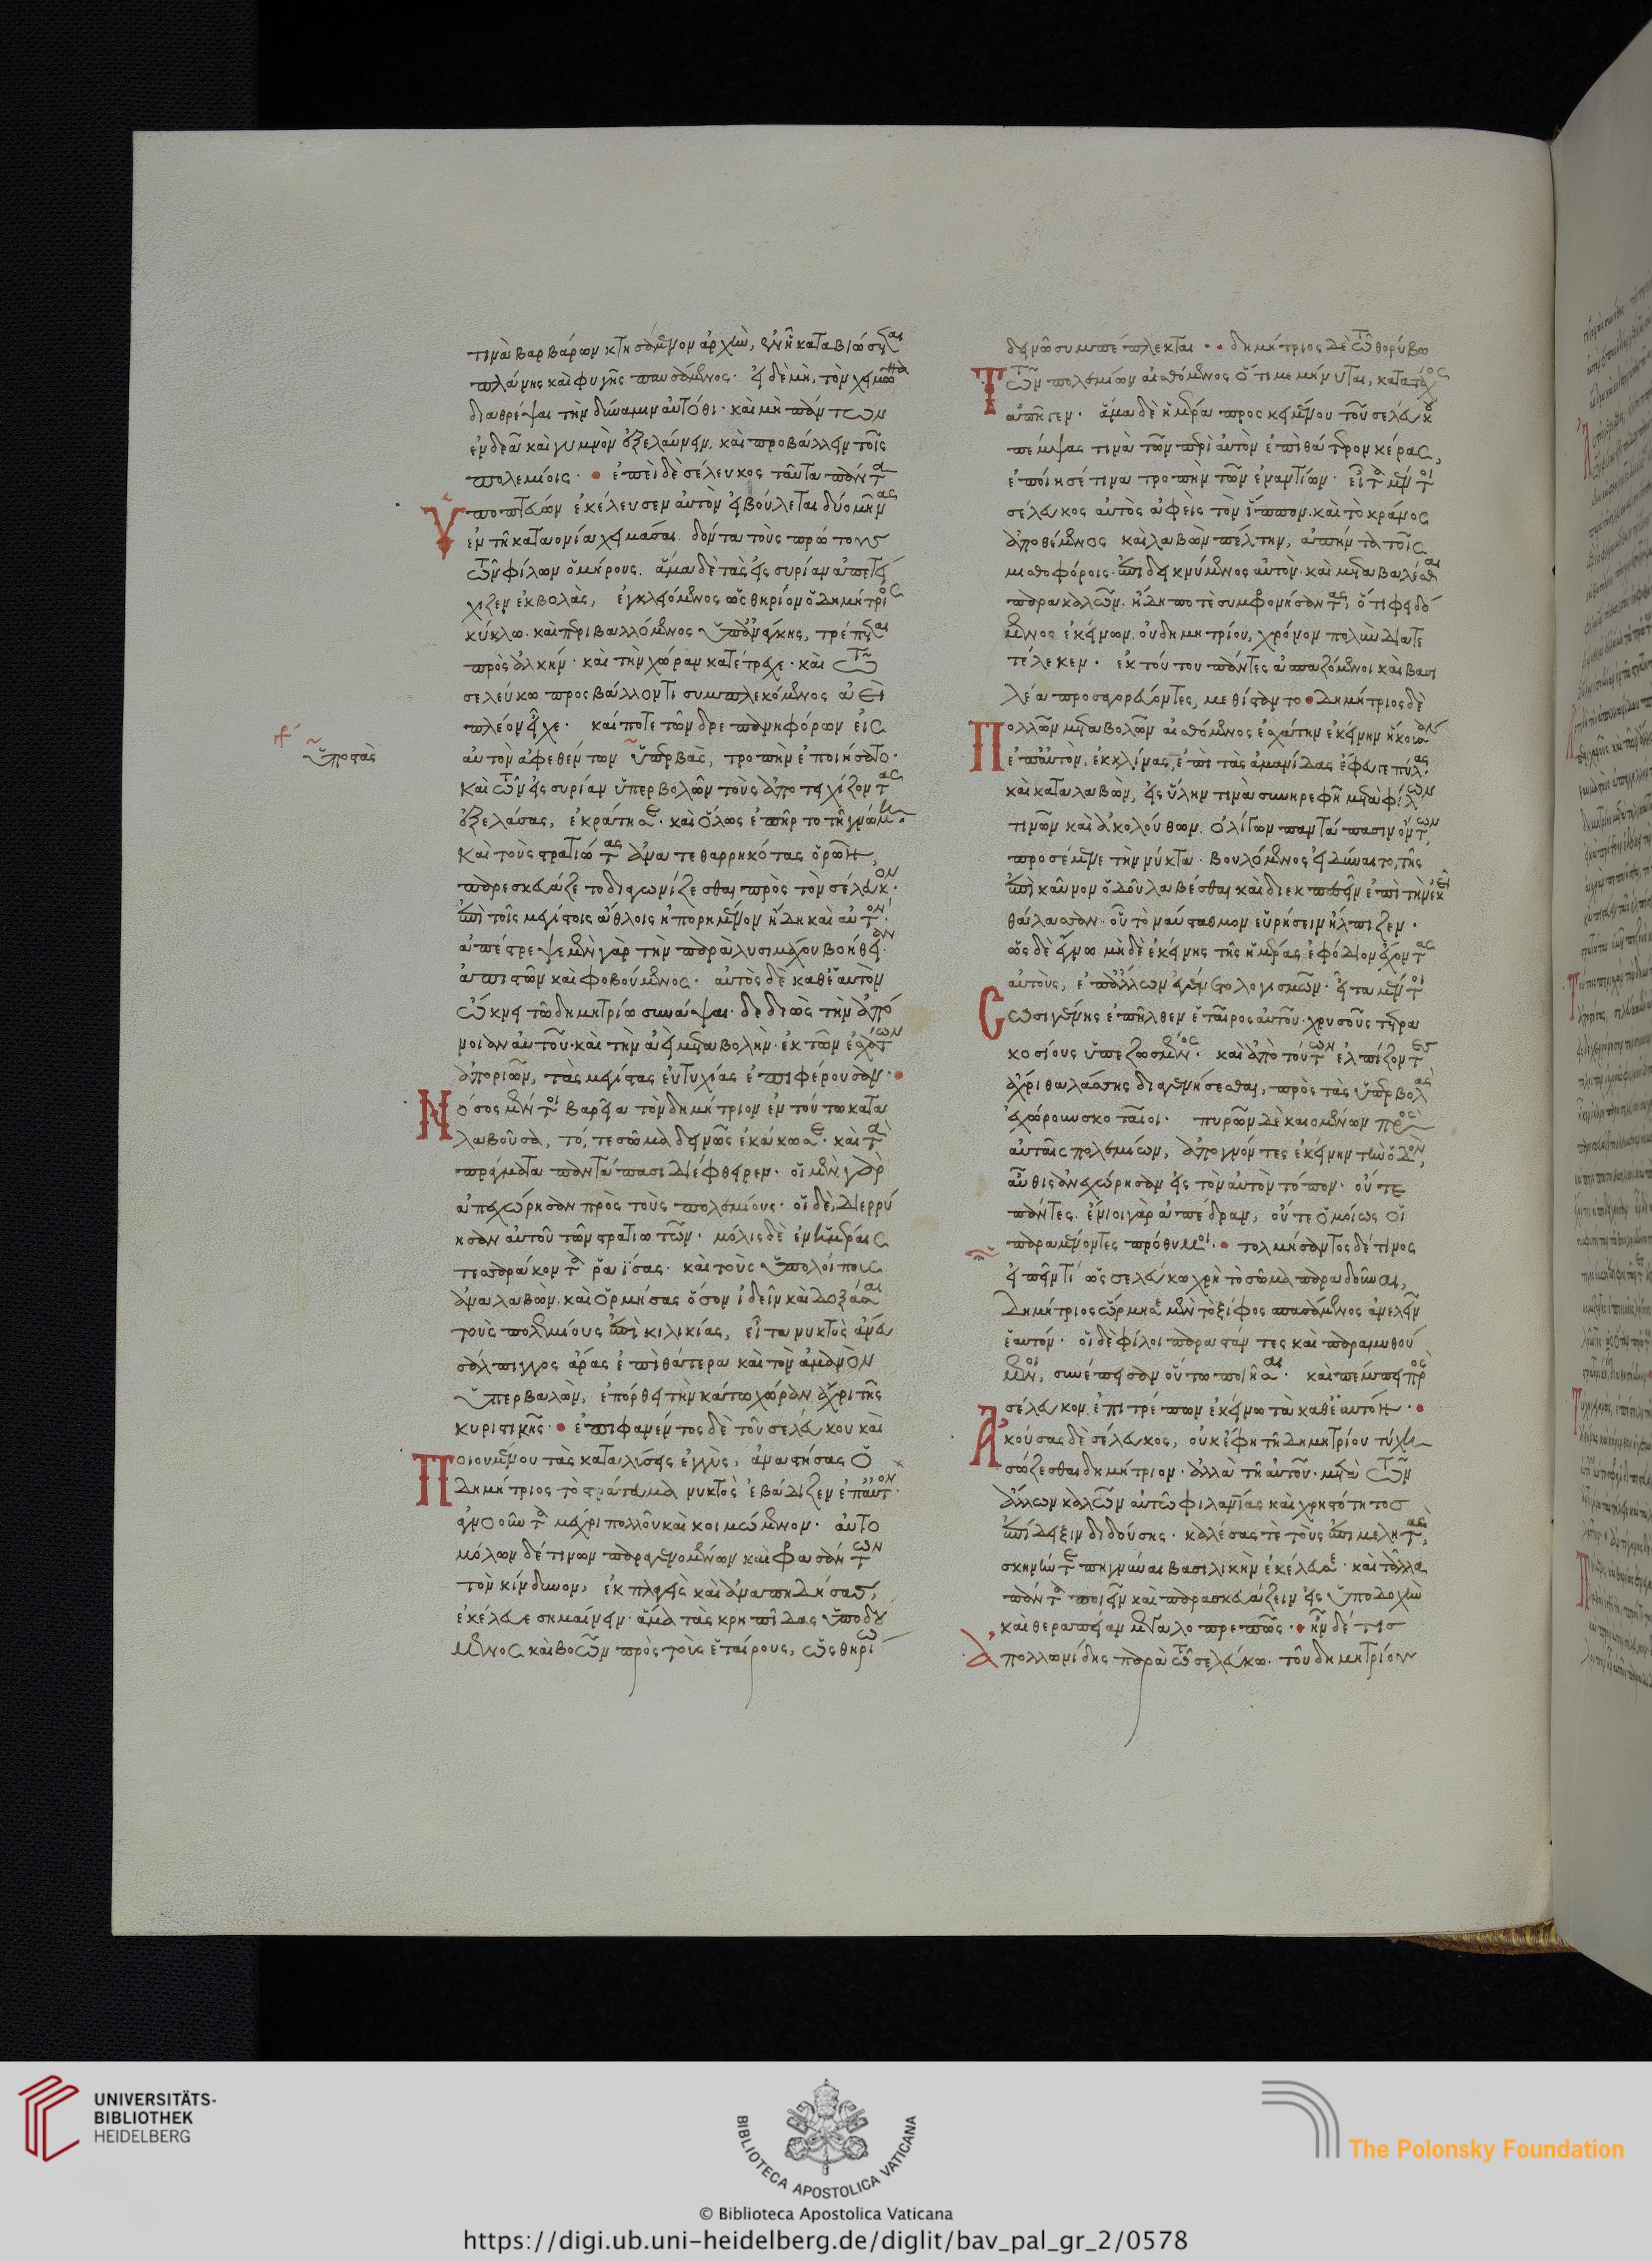 τινὰ βαρβάρων κτησάμενον ἀρχὴν, ἐν ἧ καταβιώσεται
πλάνης καὶ φυγῆς παυσάμενος· εἰ δὲ μὴ, τὸν χειμῶνα
διαθρέψαι τὴν δύναμιν αὐτόθι· καὶ μὴ πάντων
ἐνδεᾶ καὶ γυμνὸν ἐξελαύνειν. καὶ προβάλλειν τοῖς
πολεμίοις· ἐπεὶ δὲ σέλευκος ταῦτα πάντα
ὑποπτεύων ἐκέλευσεν αὐτὸν εἰ βούλεται δύο μῆνας
ἐν τῆ καταονίαι χειμάσαι. δόντα τοὺς πρώτους
τῶν φίλων ὁμήρους. ἅμα δὲ τὰς εἰς συρίαν ἀπετεί
χιζεν ἐκβολὰς, ἐγκλειόμενος ὡς θηρίον ὁ δημήτριος
κύκλω. καὶ περιβαλλόμενος ὑπ' ἀνάγκης, τρέπεται
πρὸς ἀλκήν· καὶ τὴν χώραν κατέτρεχε· καὶ τῶ
σελεύκω προσβάλλοντι συμπλεκόμενος ἀεὶ
πλέον εἶχε· καί ποτε τῶν δρεπανηφόρων εἰς
ὑποστὰς
αὐτὸν ἀφεθέντων ὑπερβὰς, τροπὴν ἐποιήσατο·
καὶ τῶν εἰς συρίαν ὑπερβολῶν τοὺς ἀποτειχίζοντας
ἐξελάσας, ἐκράτησε· καὶ ὅλως ἐπῆρτο τῆ γνώμη·
καὶ τοὺς στρατιώτας ἀνατεθαρρηκότας ὁρῶν,
παρεσκευάζετο διαγωνίζεσθαι πρὸς τὸν σέλευκον·
ἐπὶ τοῖς μεγίστοις ἄθλοις ἠπορημένον ἤδη καὶ αὐτόν·
ἀπέστρεψε μὲν γὰρ τὴν παρὰ λυσιμάχου βοήθειαν·
ἀπιστῶν καὶ φοβούμενος· αὐτὸς δὲ καθ' ἑαυτὸν
ὤκνει τῶ δημητρίω συνάψαι· δεδιὼς τὴν ἀπό
νοιαν αὐτοῦ· καὶ τὴν ἀεὶ μεταβολὴν· ἐκ τῶν ἐσχάτων
ἀποριῶν, τὰς μεγίστας εὐτυχίας ἐπιφέρουσαν·
Νόσος μέντοι βαρεῖα τὸν δημήτριον ἐν τούτω κατα
λαβοῦσα, τό, τε σῶμα δεινῶς ἐκάκωσε· καὶ τὰ
πράγματα παντάπασι διέφθειρεν· οἱ μὲν γὰρ
ἀπεχώρησαν πρὸς τοὺς πολεμίους· οἱ δὲ, διερρύ
ησαν αὐτοῦ τῶν στρατιωτῶν· μόλις δὲ ἐν ἡμέραις
τεσσαράκοντα ῥαΐσας· καὶ τοὺς ὑπολοίπους
ἀναλαβὼν· καὶ ὁρμήσας ὅσον ἰδεῖν καὶ δοξάσαι
τοὺς πολεμίους ἐπὶ κιλικίας, εἶτα νυκτὸς ἄνευ
σάλπιγγος ἄρας ἐπὶ θάτερα καὶ τὸν ἀμανὸν
ὑπερβαλὼν, ἐπόρθει τὴν κάτω χώραν ἄχρι τῆς
κυρστικῆς· ἐπιφανέντος δὲ τοῦ σελεύκου καὶ
Ποιουμένου τὰς καταλύσεις ἐγγὺς, ἀναστήσας ὁ
δημήτριος τὸ στράτευμα νυκτὸς ἐβάδιζεν ἐπ' αὐτὸν·
ἀγνοοῦντα μέχρι πολλοῦ καὶ κοιμώμενον· αὐτο
μόλων δέ τινων παραγενομένων καὶ φρασάντων
τὸν κίνδυνον, ἐκπλαγεὶς καὶ ἀναπηδήσας,
ἐκέλευε σημαίνειν· ἅμα τὰς κρηπῖδας ὑποδού
μενος καὶ βοῶν πρὸς τοὺς ἑταίρους, ὡς θηρίω
δεινῶ συμπέπλεκται· δημήτριος δὲ τῶ θορύβω
Τῶν πολεμίων αἰσθόμενος ὅτι μεμήνυται, κατὰ τάχος
ἀπῆγεν· ἅμα δὲ ἡμέρα προσκειμένου τοῦ σελεύκου
πέμψας τινὰ τῶν περὶ αὐτὸν ἐπὶ θάτερον κέρας,
ἐποίησέ τινα τροπὴν τῶν ἐναντίων· εἶτα μέντοι
σέλευκος αὐτὸς ἀφεὶς τὸν ἵππον· καὶ τὸ κράνος
ἀποθέμενος καὶ λαβὼν πέλτην, ἀπήντα τοῖς
μισθοφόροις· ἐπιδεικνύμενος αὑτὸν· καὶ μεταβαλέσθαι
παρακαλῶν. ἤδη ποτὲ συμφρονήσαντας, ὅτι φειδό
μενος ἐκείνων. οὐ δημητρίου, χρόνον πολὺν διατε
τέλεκεν· ἐκ τούτου πάντες ἀσπαζόμενοι καὶ βασι
λέα προσαγορεύοντες, μεθίσταντο· δημήτριος δὲ
Πολλῶν μεταβολῶν αἰσθόμενος ἐσχάτην ἐκείνην ἥκουσαν
ἐπ' αὐτὸν, ἐκκλίνας, ἐπὶ τὰς ἀμανίδας ἔφυγε πύλας·
καὶ καταλαβὼν, εἰς ὕλην τινὰ συνηρεφῆ μετὰ φίλων
τινῶν καὶ ἀκολούθων. ὀλίγων παντάπασιν ὄντων,
προσέμενε τὴν νύκτα· βουλόμενος εἰ δύναιτο, τῆς
ἐπὶ καῦνον ὁδοῦ λαβέσθαι καὶ διεκπεσεῖν ἐπὶ τὴν ἐκεῖ
θάλασσαν· οὗ τὸ ναύσταθμον εὑρήσειν ἤλπιζεν·
ὡς δὲ ἔγνω μηδὲ ἐκείνης τῆς ἡμέρας ἐφόδιον ἔχοντας
αὐτοὺς, ἐπ' ἄλλων ἦν λογισμῶν· εἶτα μέντοι
Σωσιγένης ἐπῆλθεν ἑταῖρος αὐτοῦ· χρυσοῦς τετρα
κοσίους ὑπεζωσμένος· καὶ ἀπὸ τούτων ἐλπίζοντες
ἄχρι θαλάσσης διαγενήσεσθαι, πρὸς τὰς ὑπερβολὰς
ἐχώρουν σκοταῖοι· πυρῶν δὲ καιομένων πρὸς
αὐταῖς πολεμίων, ἀπογνόντες ἐκείνην τὴν ὁδὸν,
αὖθις ἀνεχώρησαν εἰς τὸν αὐτὸν τόπον· οὔτε
πάντες. ἔνιοι γὰρ ἀπέδραν, οὔτε ὁμοίως οἱ
παραμένοντες πρόθυμοι· τολμήσαντος δέ τινος
εἰπεῖν τί ὡς σελεύκω χρὴ τὸ σῶμα παραδοῦναι,
δημήτριος ὥρμησε μὲν τὸ ξίφος σπασάμενος ἀνελεῖν
ἑαυτόν· οἱ δὲ φίλοι περιστάντες καὶ παραμυθού
μενοι, συνέπεισαν οὕτω ποιῆσαι· καὶ πέμπει πρὸς
σέλευκον ἐπιτρέπων ἐκείνω τὰ καθ' ἑαυτόν·
Ἀκούσας δὲ σέλευκος, οὐκ ἔφη τῆ δημητρίου τύχη
σώζεσθαι δημήτριον· ἀλλὰ τῆ αὑτοῦ· μετὰ τῶν
ἄλλων καλῶν αὐτῶ φιλανθρωπίας καὶ χρηστότητος
ἐπίδειξιν διδούσης· καλέσας τὲ τοὺς ἐπιμελητὰς,
σκηνήν τε πηγνύναι βασιλικὴν ἐκέλευσε· καὶ τἄλλα
πάντα ποιεῖν καὶ παρασκευάζειν εἰς ὑποδοχὴν
καὶ θεραπείαν μεγαλοπρεπῶς· ἦν δέ τις
Ἀπολλωνίδης παρὰ τῶ σελεύκω. τοῦ δημητρίου
UNIVERSITÄTS-
BIBLIOTHEK
HEIDELBERG
BIBLIOTECA APOSTOLICA VATICANA
The Polonsky Foundation
© Biblioteca Apostolica Vaticana
https://digi.ub.uni-heidelberg.de/diglit/bav_pal_gr_2/0578